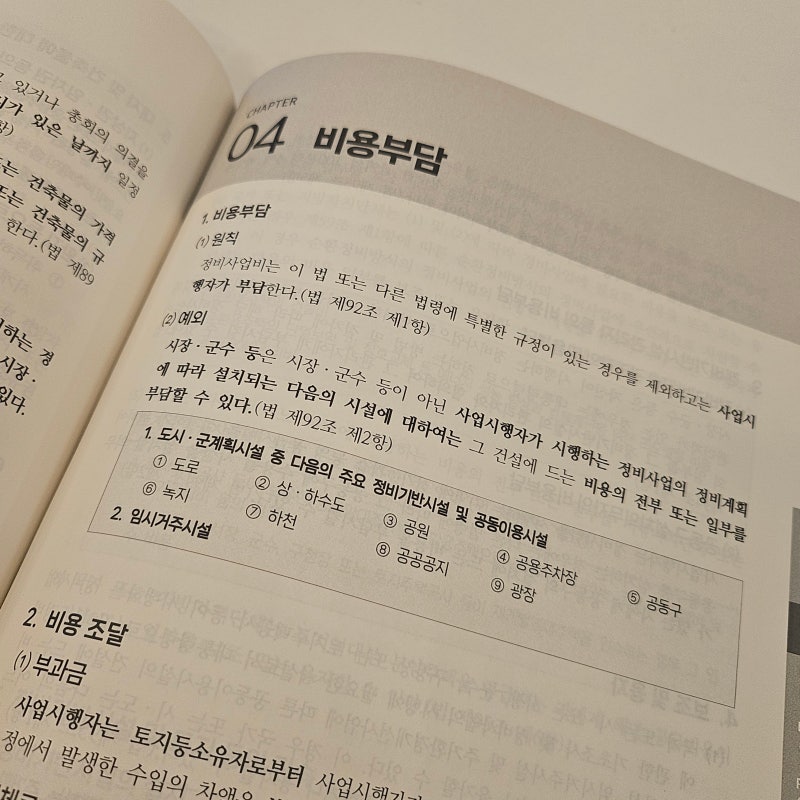 있거나 총회의 의결을
가 있은 날까지 일정
또는 건축물의 가격
또는 건축물의 규
한다.(법 제89
하는 경
시장 ·
있다.
CHAPTER
04 비용부담
1. 비용부담
(1) 원칙
정비사업비는 이 법 또는 다른 법령에 특별한 규정이 있는 경우를 제외하고는 사업시
행자가 부담한다.(법 제92조 제1항)
(2) 예외
시장 · 군수 등은 시장 · 군수 등이 아닌 사업시행자가 시행하는 정비사업의 정비계획
에 따라 설치되는 다음의 시설에 대하여는 그 건설에 드는 비용의 전부 또는 일부를
부담할 수 있다.(법 제92조 제2항)
1. 도시 · 군계획시설 중 다음의 주요 정비기반시설 및 공동이용시설
① 도로 ② 상 · 하수도 ③ 공원 ④ 공용주차장 ⑤ 공동구
⑥ 녹지 ⑦ 하천 ⑧ 공공공지 ⑨ 광장
2. 임시거주시설
2. 비용 조달
(1) 부과금
사업시행자는 토지등소유자로부터 사업시행기
정에서 발생한 수입의 차액을